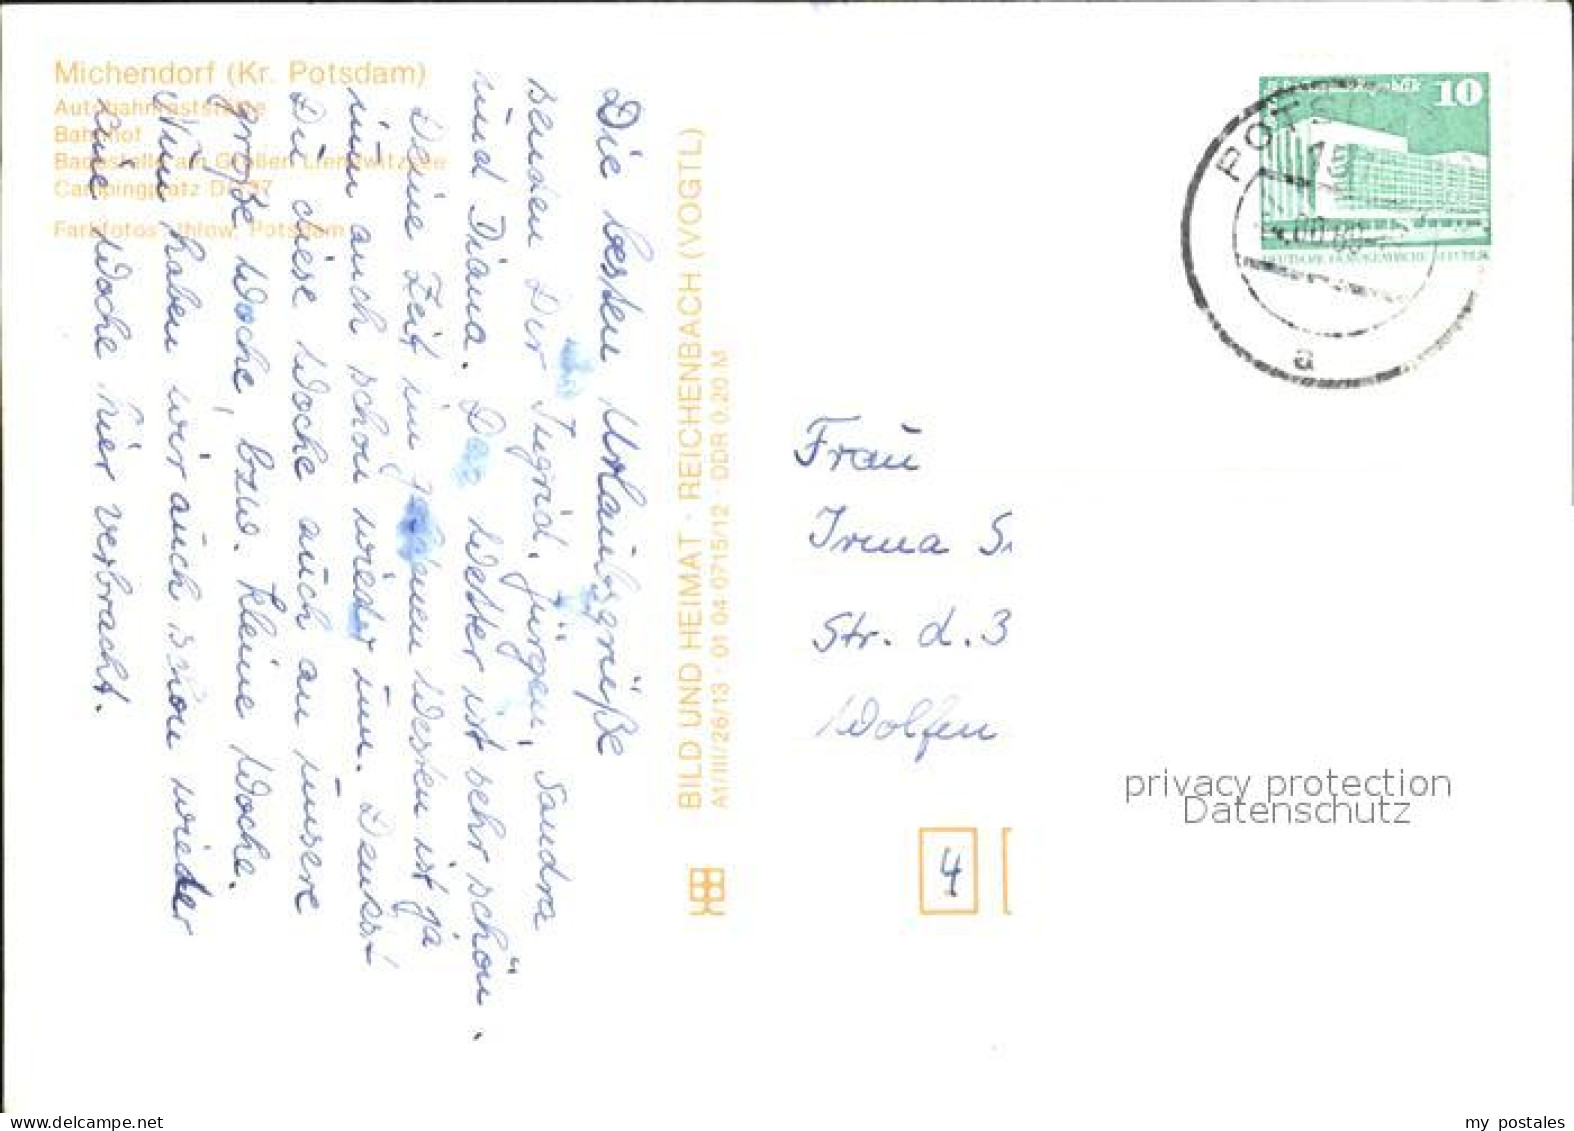 Michendorf (Kr. Potsdam)
Autobahnraststätte
Bahnhof
Badestelle am Großen Lienewitzsee
Campingplatz D 27
Farbfotos: Ihlow, Potsdam
Die besten Urlaubsgrüße
senden Dir Ingrid, Jürgen, Sandra
und Diana. Das Wetter ist sehr schön.
Deine Zeit im Westen ist ja
nun auch schon wieder um. Denkst
Du diese Woche auch an unsere
große Woche, bzw. kleine Woche.
Nun haben wir auch schon wieder
eine Woche hier verbracht.
BILD UND HEIMAT · REICHENBACH (VOGTL)
A1/III/26/13 · 01 04 0715/12 · DDR 0,20 M
10
DEUTSCHE DEMOKRATISCHE REPUBLIK
POTSD
a
Frau
Irma
Str. d. 3
Wolfen
4
privacy protection
Datenschutz
my postales